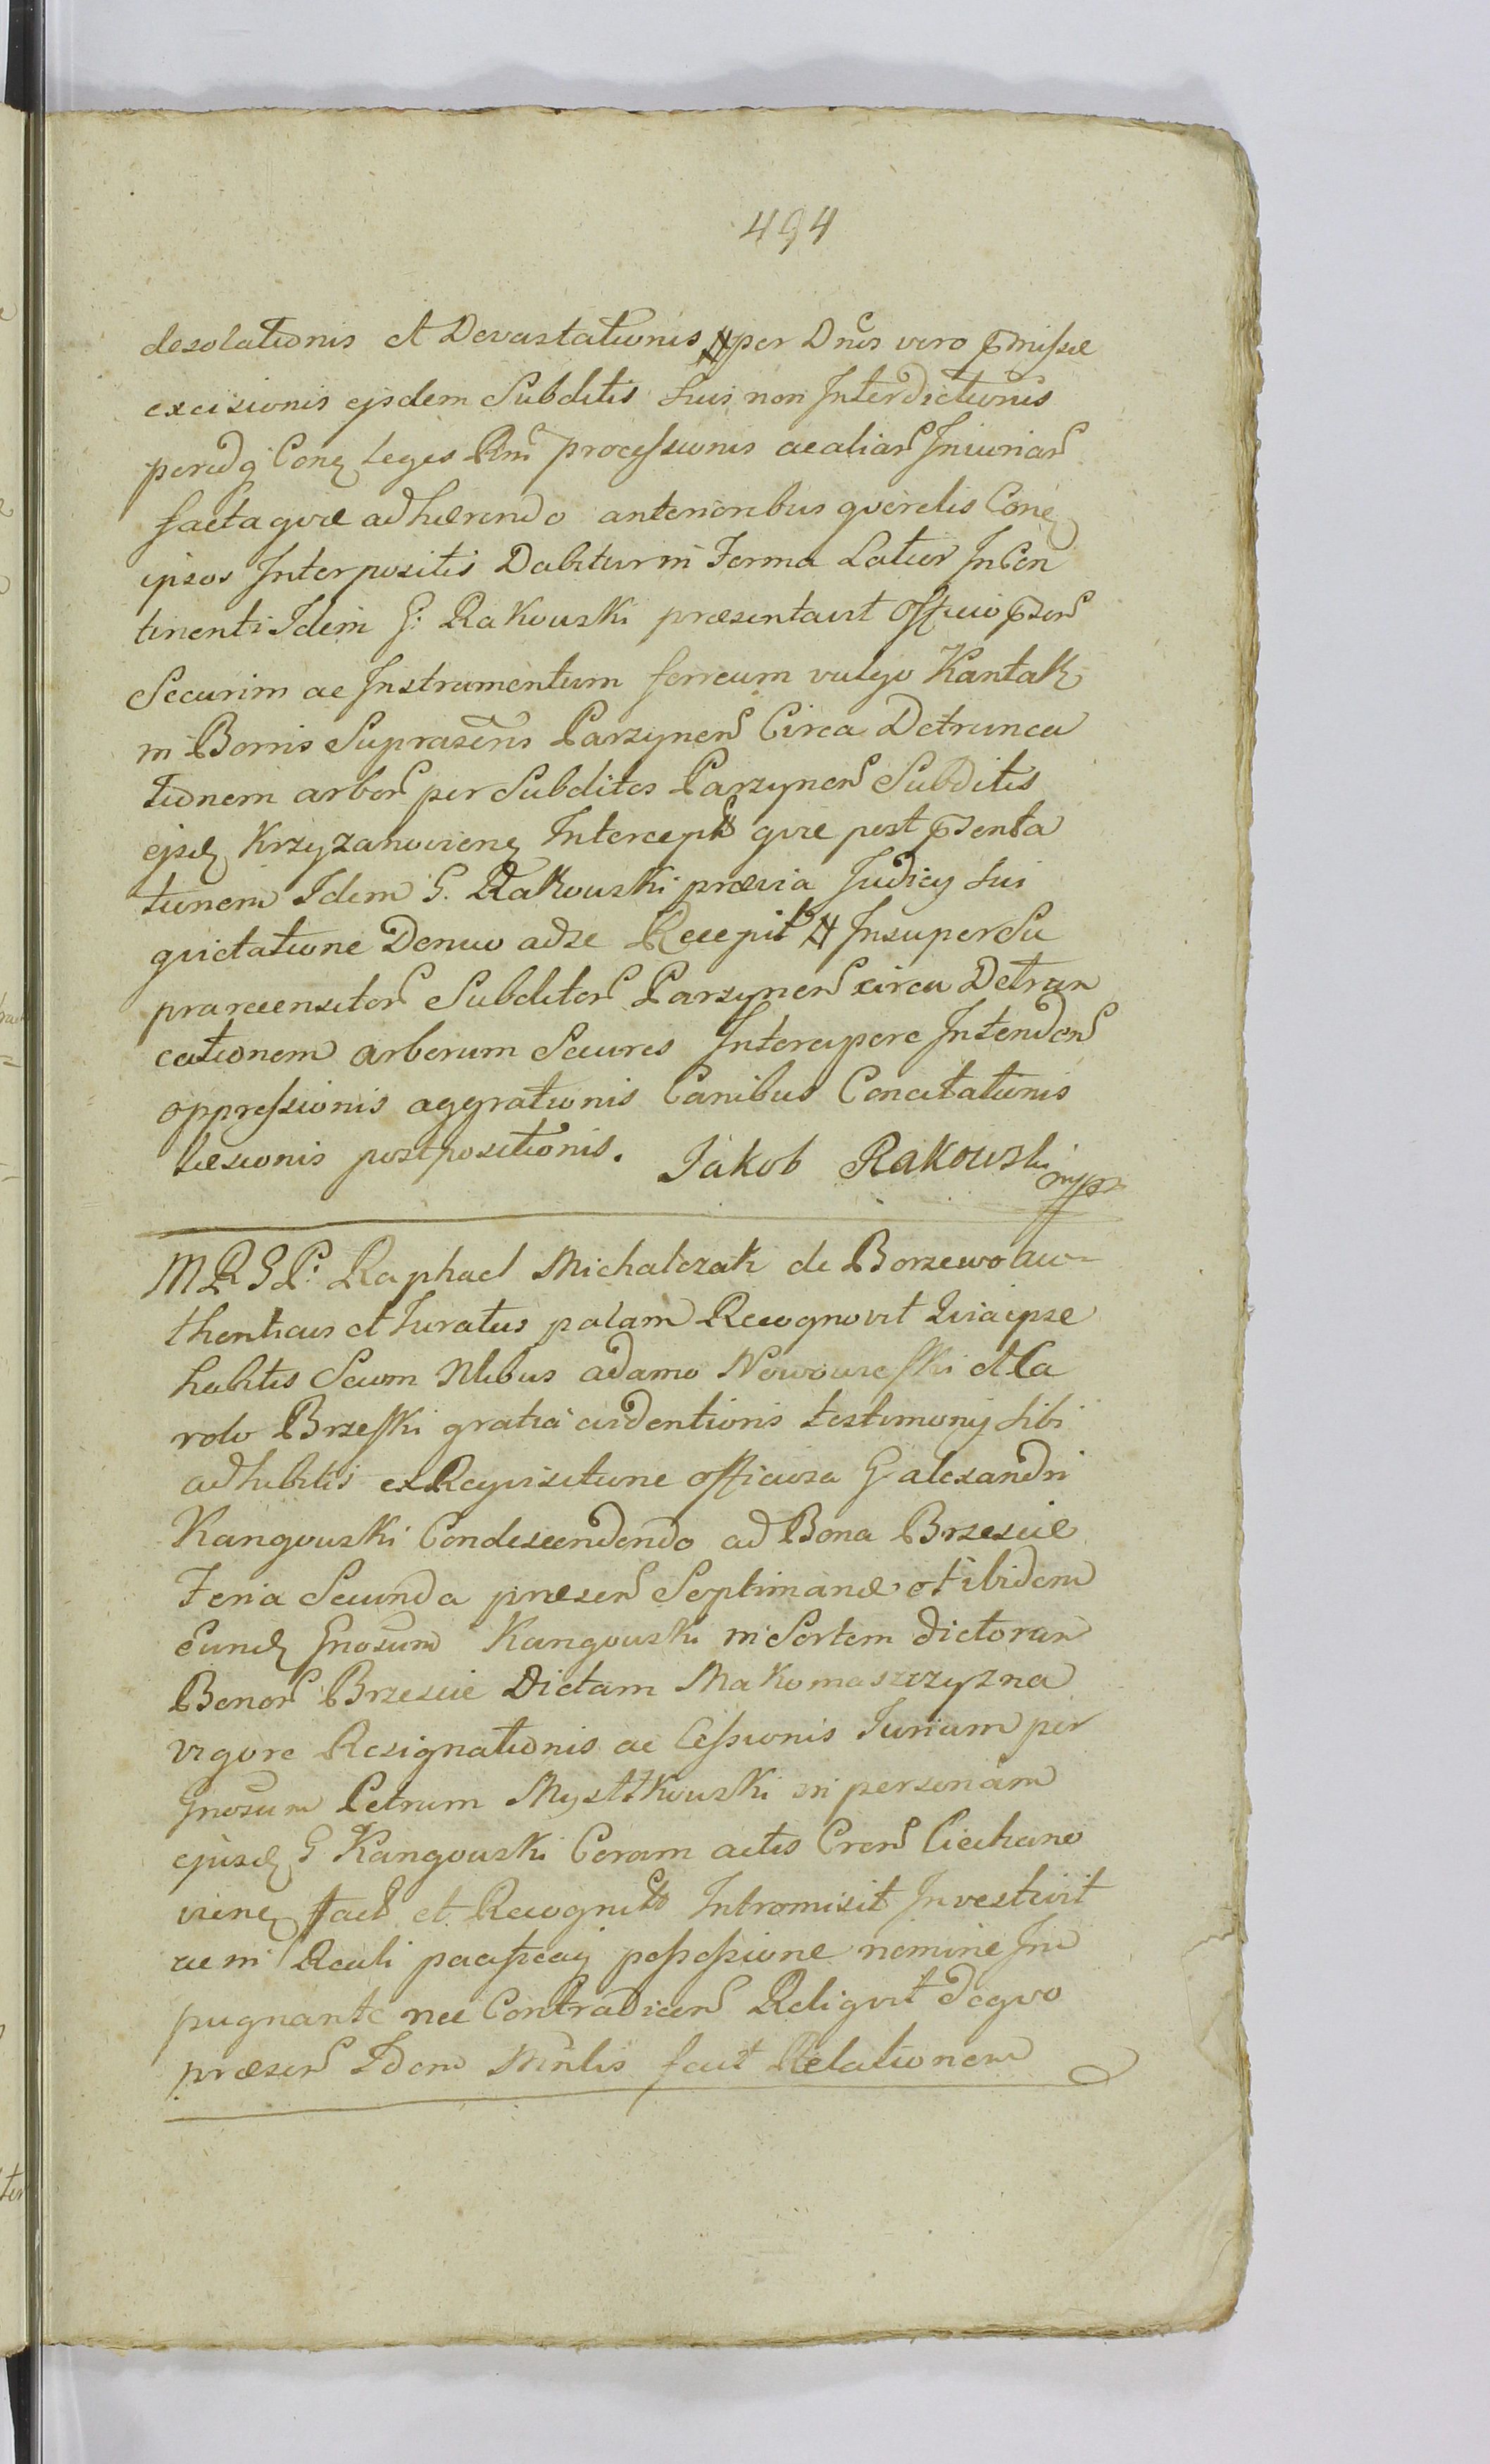 494
desolationis et Devastationis # per Dnos vero pmissæ
excisionis ejsdem Subditis suis non Interdictionis
peredq Conq Leges Rni processionis ac aliar Iniuriar
facta quæ adhærendo anterioribus querelis Conq
ipsos Interpositis Dabitur in Forma Latior InCon
tinenti Idem G: Rakowski præsentavit Officio psen
Securim ac Instrumentum ferreum vulgo Kantak
in Bonis Suprascris Parzynen Circa Detrunca
tionem arbor per Subditos Parzynen Subditis
ejsd Krzyzanovienq Intercept quæ post psenta
tionem Idem G. Rakowski prævia Judicij sui
quietatione Denuo ad se Recepit # Insuper Su
prarecensitor Subditor Parzynen circa Detrun
cationem arborum Secures Intercipere Intenden
oppressionis aggrationis Canibus Concitationis
læsionis postpositionis. Jakob Rakowski mpp
MRGP: Raphael Michalczak de Borzewo au=
thenticus et Iuratus palam Recognovit Quia ipse
habitis Secum Nlibus adamo Nowowieski et Ca
rolo Brzeski gratia evidentioris testimonij sibi
adhibitis ex Requisitione officiosa G alexandri
Kangowski Condescendendo ad Bona Brzescie
Feria Secunda præsen Septimanæ et ibidem
Eund Gnosum Kangowski in Sortem dictorum
Bonor Brzescie Dictam Makomaszczyzna
vigore Resignationis ac Cessionis Iurium per
Gnosum Petrum Mystkowski in personam
ejusd G Kangowski Coram actis Cren Ciechano
vienq fact et Recognit Intromisit Investivit
ac in Reali pacificaq possessione nemine Im
pugnante nec Contradicen Reliquit de quo
præsen Idem Mnlis fecit Relationem